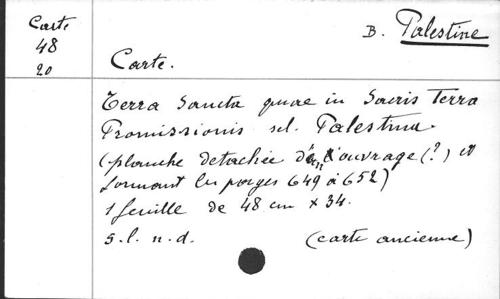 Carte
48
20
B. Palestine
Carte.
Terra Sancta quae in Sacris Terra
Promissionis sel. Palestina.
(planche detachée d'un ouvrage (?) et
formant les pages 649 à 652)
1 feuille de 48 cm x 34.
s.l. n.d. (carte ancienne)